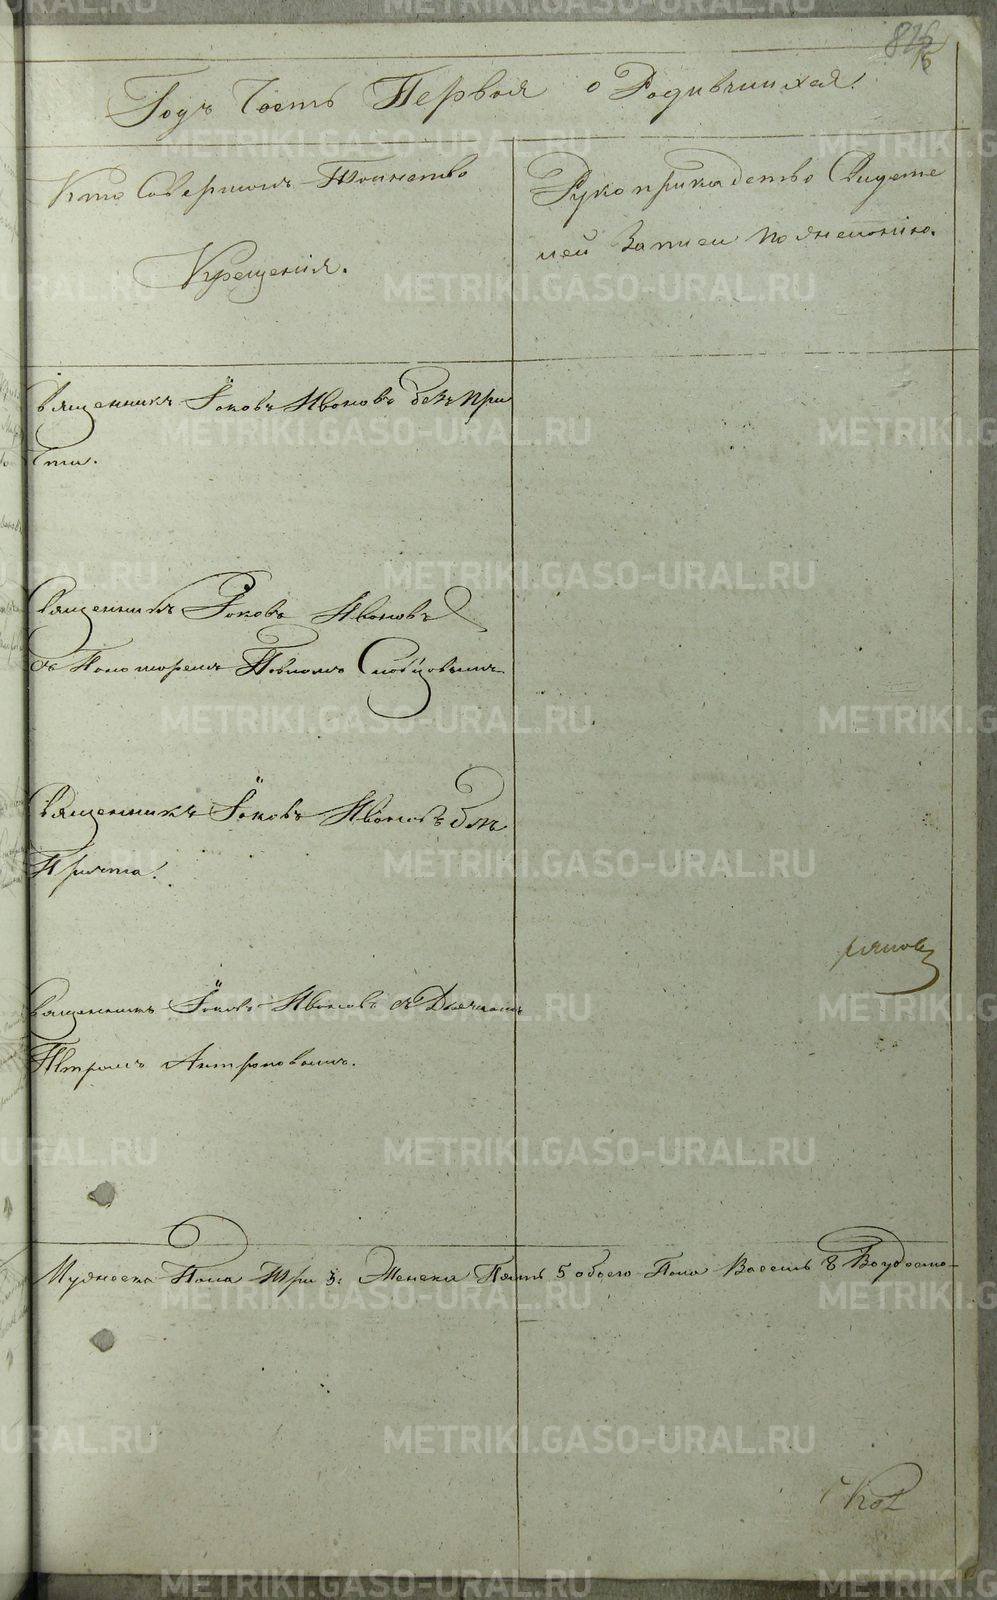 Годъ Часть Первая о Родившихся.
Кто Совершалъ Таинство
Крещенія.
Рукоприкладство Свидете
лей Записи по желанію.
Священникъ Іаковъ Ивановъ безъ при
Священникъ Іаковъ Ивановъ
съ Пономаремъ Павломъ Словцовымъ
Священникъ Іаковъ Ивановъ безъ
Причта.
Священникъ Іаковъ Ивановъ съ Дьячкомъ
Петромъ Антроповымъ.
Мужеска Пола Три 3. Женска Пять 5 обоего Пола Восемь 8
METRIKI.GASO-URAL.RU